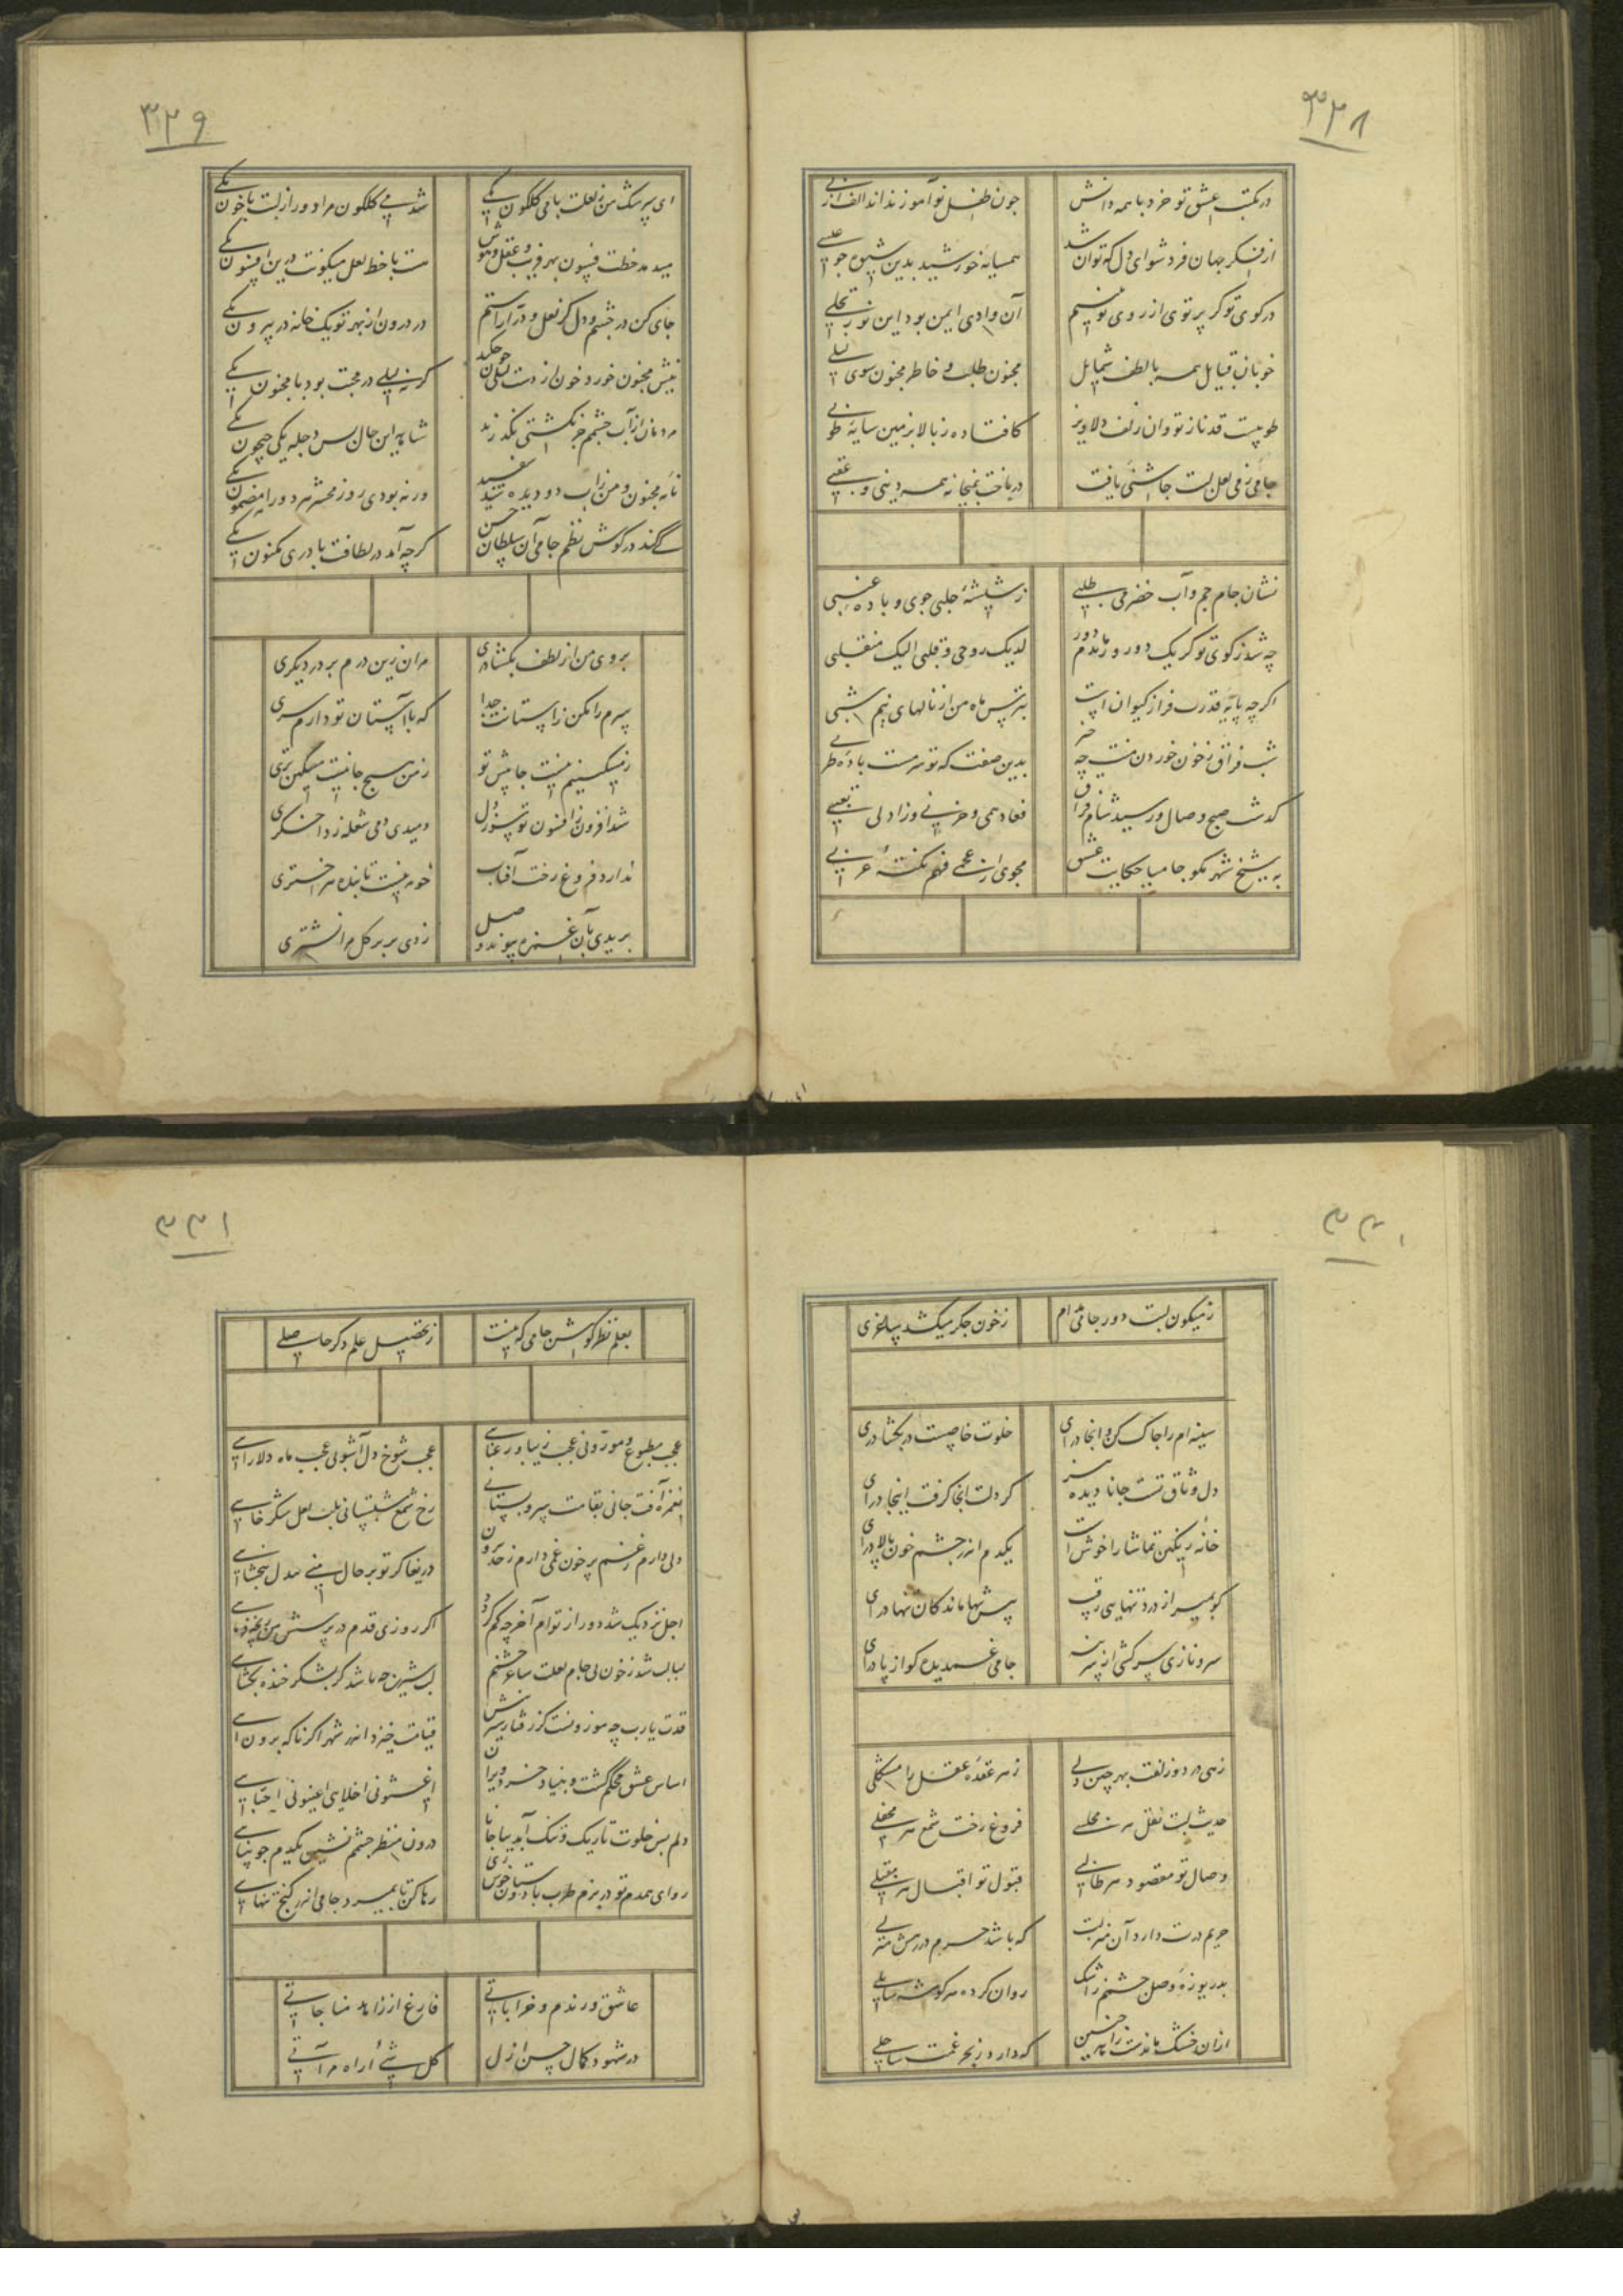 ۳۲۸
در مکتب عشق تو خرد با همه دانش چون طفل نوآموز نداند الف از بی
از فکر جهان فرد شو ای دل که توان شد همسایه خورشید بدین شیوه چو عیسی
در کوی تو گر پرتوی از روی تو بینم آن وادی ایمن بود این نور تجلی
خوبان قبایل همه با لطف شمایل مجنون طلبد و خاطر مجنون سوی لیلی
طوبیست قد ناز تو وان زلف دلاویز کافتاده ز بالا بزمین سایه طوبی
جامی ز می لعل لبت چاشنئی یافت درباخت بمیخانه همه دینی و عقبی
نشان جام جم و آب خضر می طلبی ز شیشه حلبی جوی و باده عنبی
چه شد ز کوی تو گر یک دو روز ماندم دور لدیک روحی و قلبی الیک منقلبی
اگر چه پایه قدرت فراز کیوان است بترس ماه من از نالهای نیم شبی
شب فراق ز خون خوردن منت چه خبر بدین صفت که تو سرمست باده طربی
گذشت صبح وصال و رسید شام فراق فعاد همی و حزنی و زاد لی تعبی
به پیش شیخ شهر مگو جامیا حکایت عشق مجوی از عجمی فهم نکته عربی
۳۲۹
ای سرشک من ز لعلت با می گلگون یکی شد می گلگون مرا دور از لبت با خون یکی
میدمد خطت فسون بهر فریب عقل و هوش هست با خط لعل میگونت درین افسون یکی
جای کن در چشم و دل کز لعل و در آراستم در درون از بهر تو یک خانه در بیرون یکی
نیش مجنون خورد خون از دست لیلی چون چکد گرنه لیلی در محبت بود با مجنون یکی
مردمان از آب چشمم جز بکشتی نگذرند شاید این حال بس دجله یکی جیحون یکی
نامه مجنون و من ز آب دو دیده شد سفید ورنه بودی روز محشر هر دو را مضمون یکی
کی کند در گوش نظم جامی آن سلطان حسن گرچه آمد در لطافت با در مکنون یکی
بروی من از لطف بگشا دری مران زین درم بر در دیگری
سرم را مکن ز آستانت جدا که با آستان تو دارم سری
ز مسکینیم نیست جا پیش تو ز من هیچ جا نیست مسکین‌تری
شد افزون ز افسون تو سوز دل دمیدی دمی شعله زد اخگری
ندارد فروغ رخت آفتاب چو مه نیست تابنده هر اختری
بریدی بآن غمزه پیوند وصل زدی بر بر گل مرا نشتری
۳۳۰
ز میگون لبت دور جامی مدام ز خون جگر میکشد ساغری
سینه‌ام را چاک کن وانجا درای خلوت خاصیست در بگشا درای
دل وثاق تست جانا دیده نیز گر دلت آنجا گرفت اینجا درای
خانه رنگین تماشا را خوش است یکدم اندر چشم خون پالا درای
گو بمیر از درد تنهایی رقیب پیش تنها ماندگان تنها درای
سرو نازی سرکشی از سر بنه جامی غمدیده گو از پا درای
زهی در دو زلفت بهر چین دلی ز هر عقده عقل را مشکلی
حدیث لبت نقل هر محفلی فروغ رخت شمع هر محفلی
وصال تو مقصود هر طالبی قبول تو اقبال هر مقبلی
حریم درت دارد آن منزلت که باشد حرم در رهش منزلی
بدریوزه وصل چشمم ز اشک روان کرده هر گوشه سایلی
ازان خشک ماندست زاهد چنین که دارد ز بحر غمت ساحلی
۳۳۱
بعلم نظر کوش جامی که نیست ز تحصیل علم دگر حاصلی
عجب مطبوع و موزونی عجب زیبا و رعنایی عجب شوخ دل آشوبی عجب ماه دلارایی
بغمزه آفت جانی بقامت سرو بستانی برخ شمع شبستانی بلب لعل شکر خایی
دلی دارم ز غم پر خون غمی دارم ز حد بیرون دریغا گر تو بر حال من بیدل نبخشایی
اجل نزدیک شد دور از توام آخر چه کم گردد اگر روزی قدم در پرسش من رنجه فرمایی
لبالب شد ز خون بی جام لعلت ساغر چشمم لب شیرین چه باشد گر بشکر خنده بگشایی
قدت یارب چه موزونست کز رفتار شیرینش قیامت خیزد اندر شهر اگر ناگه برون آیی
اساس عشق محکم گشت و بنیاد خرد ویران اغیثونی اخلایی اعینونی احبایی
دلم بس خلوت تاریک و تنگ آمد بیا جانا درون منظر چشمم نشین یکدم چو بینایی
رو ای همدم تو در بزم طرب با دوستان خوش زی رها کن تا بمیرد جامی اندر کنج تنهایی
عاشق و رندم و خراباتی فارغ از زاهد مناجاتی
در شهود کمال حسن ازل کل شیء اراه مرآتی